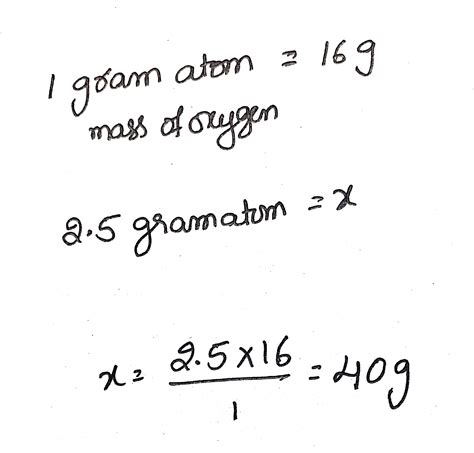 1 gram atom = 16g
mass of oxygen
2.5 gramatom = x
x = 2.5 × 16 / 1 = 40g